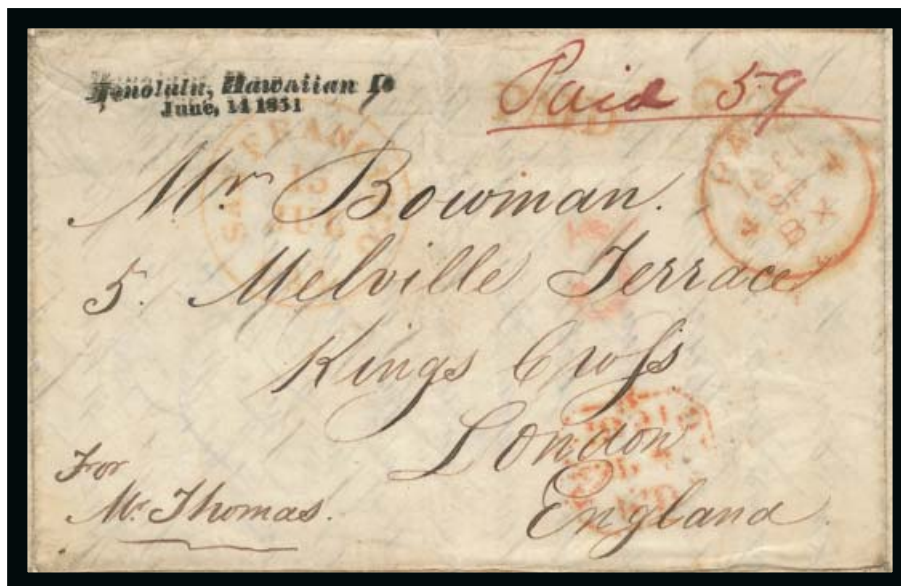 Honolulu, Hawaiian Is
June, 14 1851
Paid 59
PAID
SAN FRANCISCO
15
JUL
Mr Bowman.
5. Melville Terrace
Kings Cross
London
England
For
Mr. Thomas.
PAID
BX